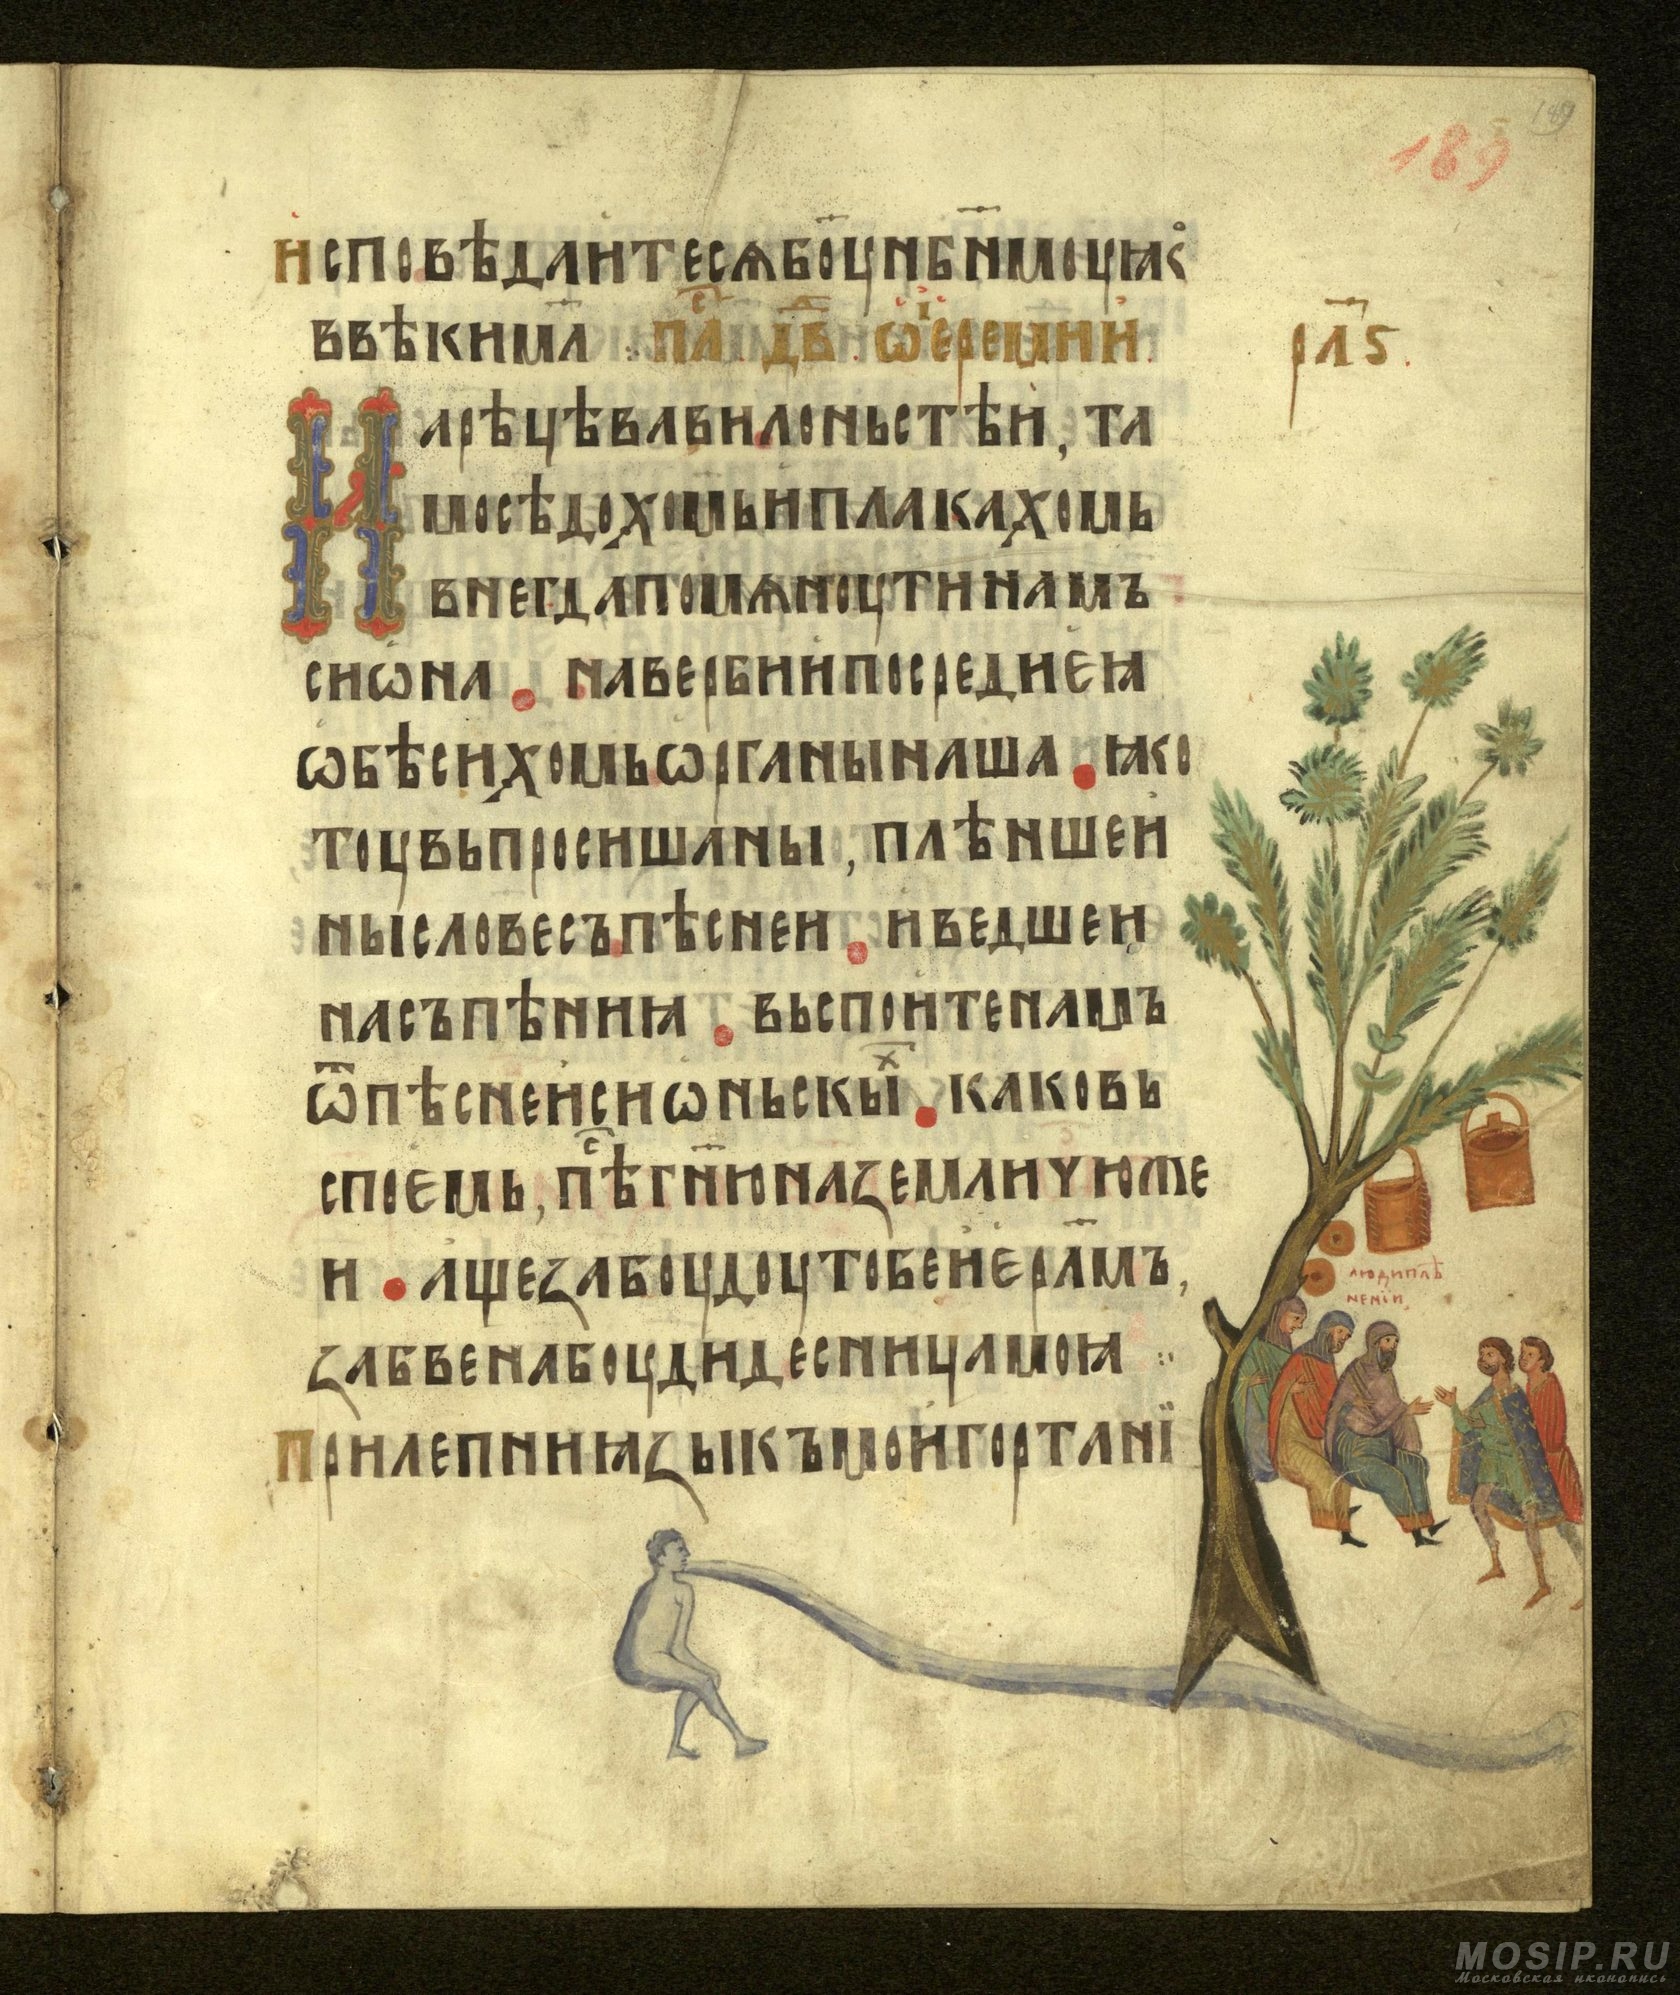 189
189
исповѣдаитесѧбо҃уиб҃нмоуꙗко
ввѣкимл҃ ⁘ пл҃с дв҃ .ѡ҆і҆еремии.
рл҃ѕ.
Нарѣцѣвавилоньстѣи, та
мосѣдохомьиплакахомь
внегдапомѧноутинамъ
сиѡна . навербиипосредиеꙗ
ѡбѣсихомьѡрганынаша . ꙗко
тоувьпросишаны, плѣншеи
нысловесъпѣснеи . иведшеи
насъпѣниꙗ . вьспоитенамъ
ѿпѣснеисиѡньскыⷯи . каковь
споемь, пⷭ҇ѣгн҃юназемличюже
и . ащезабоудоутобеиерл҃мъ,
забвенабоудидесницамоꙗ ⁘
прилепниꙗзыкъмоигортанї
людиплѣ
нении
MOSIP.RU
Московская иконопись